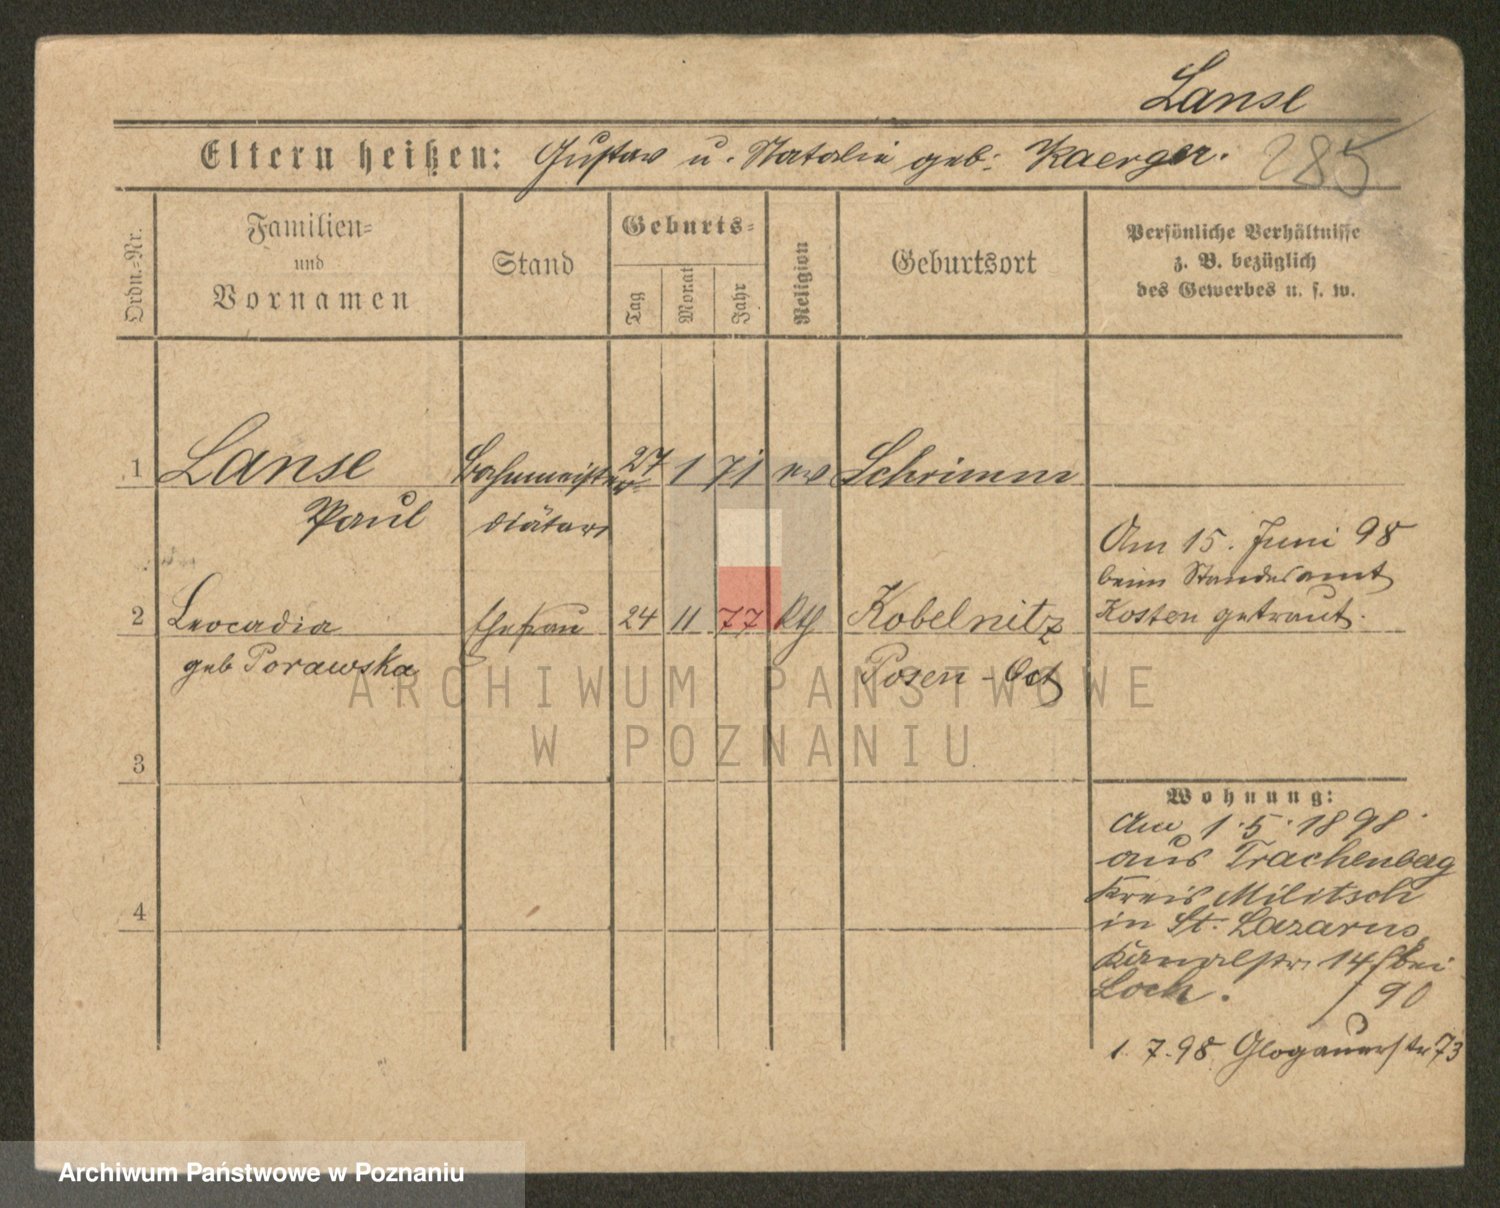 Lanse
Eltern heißen: Gustav u. Natalie geb: Kaerger.
285
Ordn.-Nr.
Familien-
und
Vornamen
Stand
Geburts-
Tag
Monat
Jahr
Religion
Geburtsort
Persönliche Verhältnisse
z. B. bezüglich
des Gewerbes u. s. w.
1 Lanse Bahnmeister 27 1 71 ev Schrimm
Paul diätar
Am 15. Juni 98
beim Standesamt
2 Leocadia Ehefrau 24 11 77 Kth Kobelnitz Kosten getraut.
geb Porawska Posen - Ost
ARCHIWUM PAŃSTWOWE
W POZNANIU
3
Wohnung:
Am 1.5.1898
aus Trachenbag
Kreis Militsch
4 in St. Lazarus
Kanalstr. 14 bei
Loch. / 90
1. 7. 98 Glogauerstr 73
Archiwum Państwowe w Poznaniu